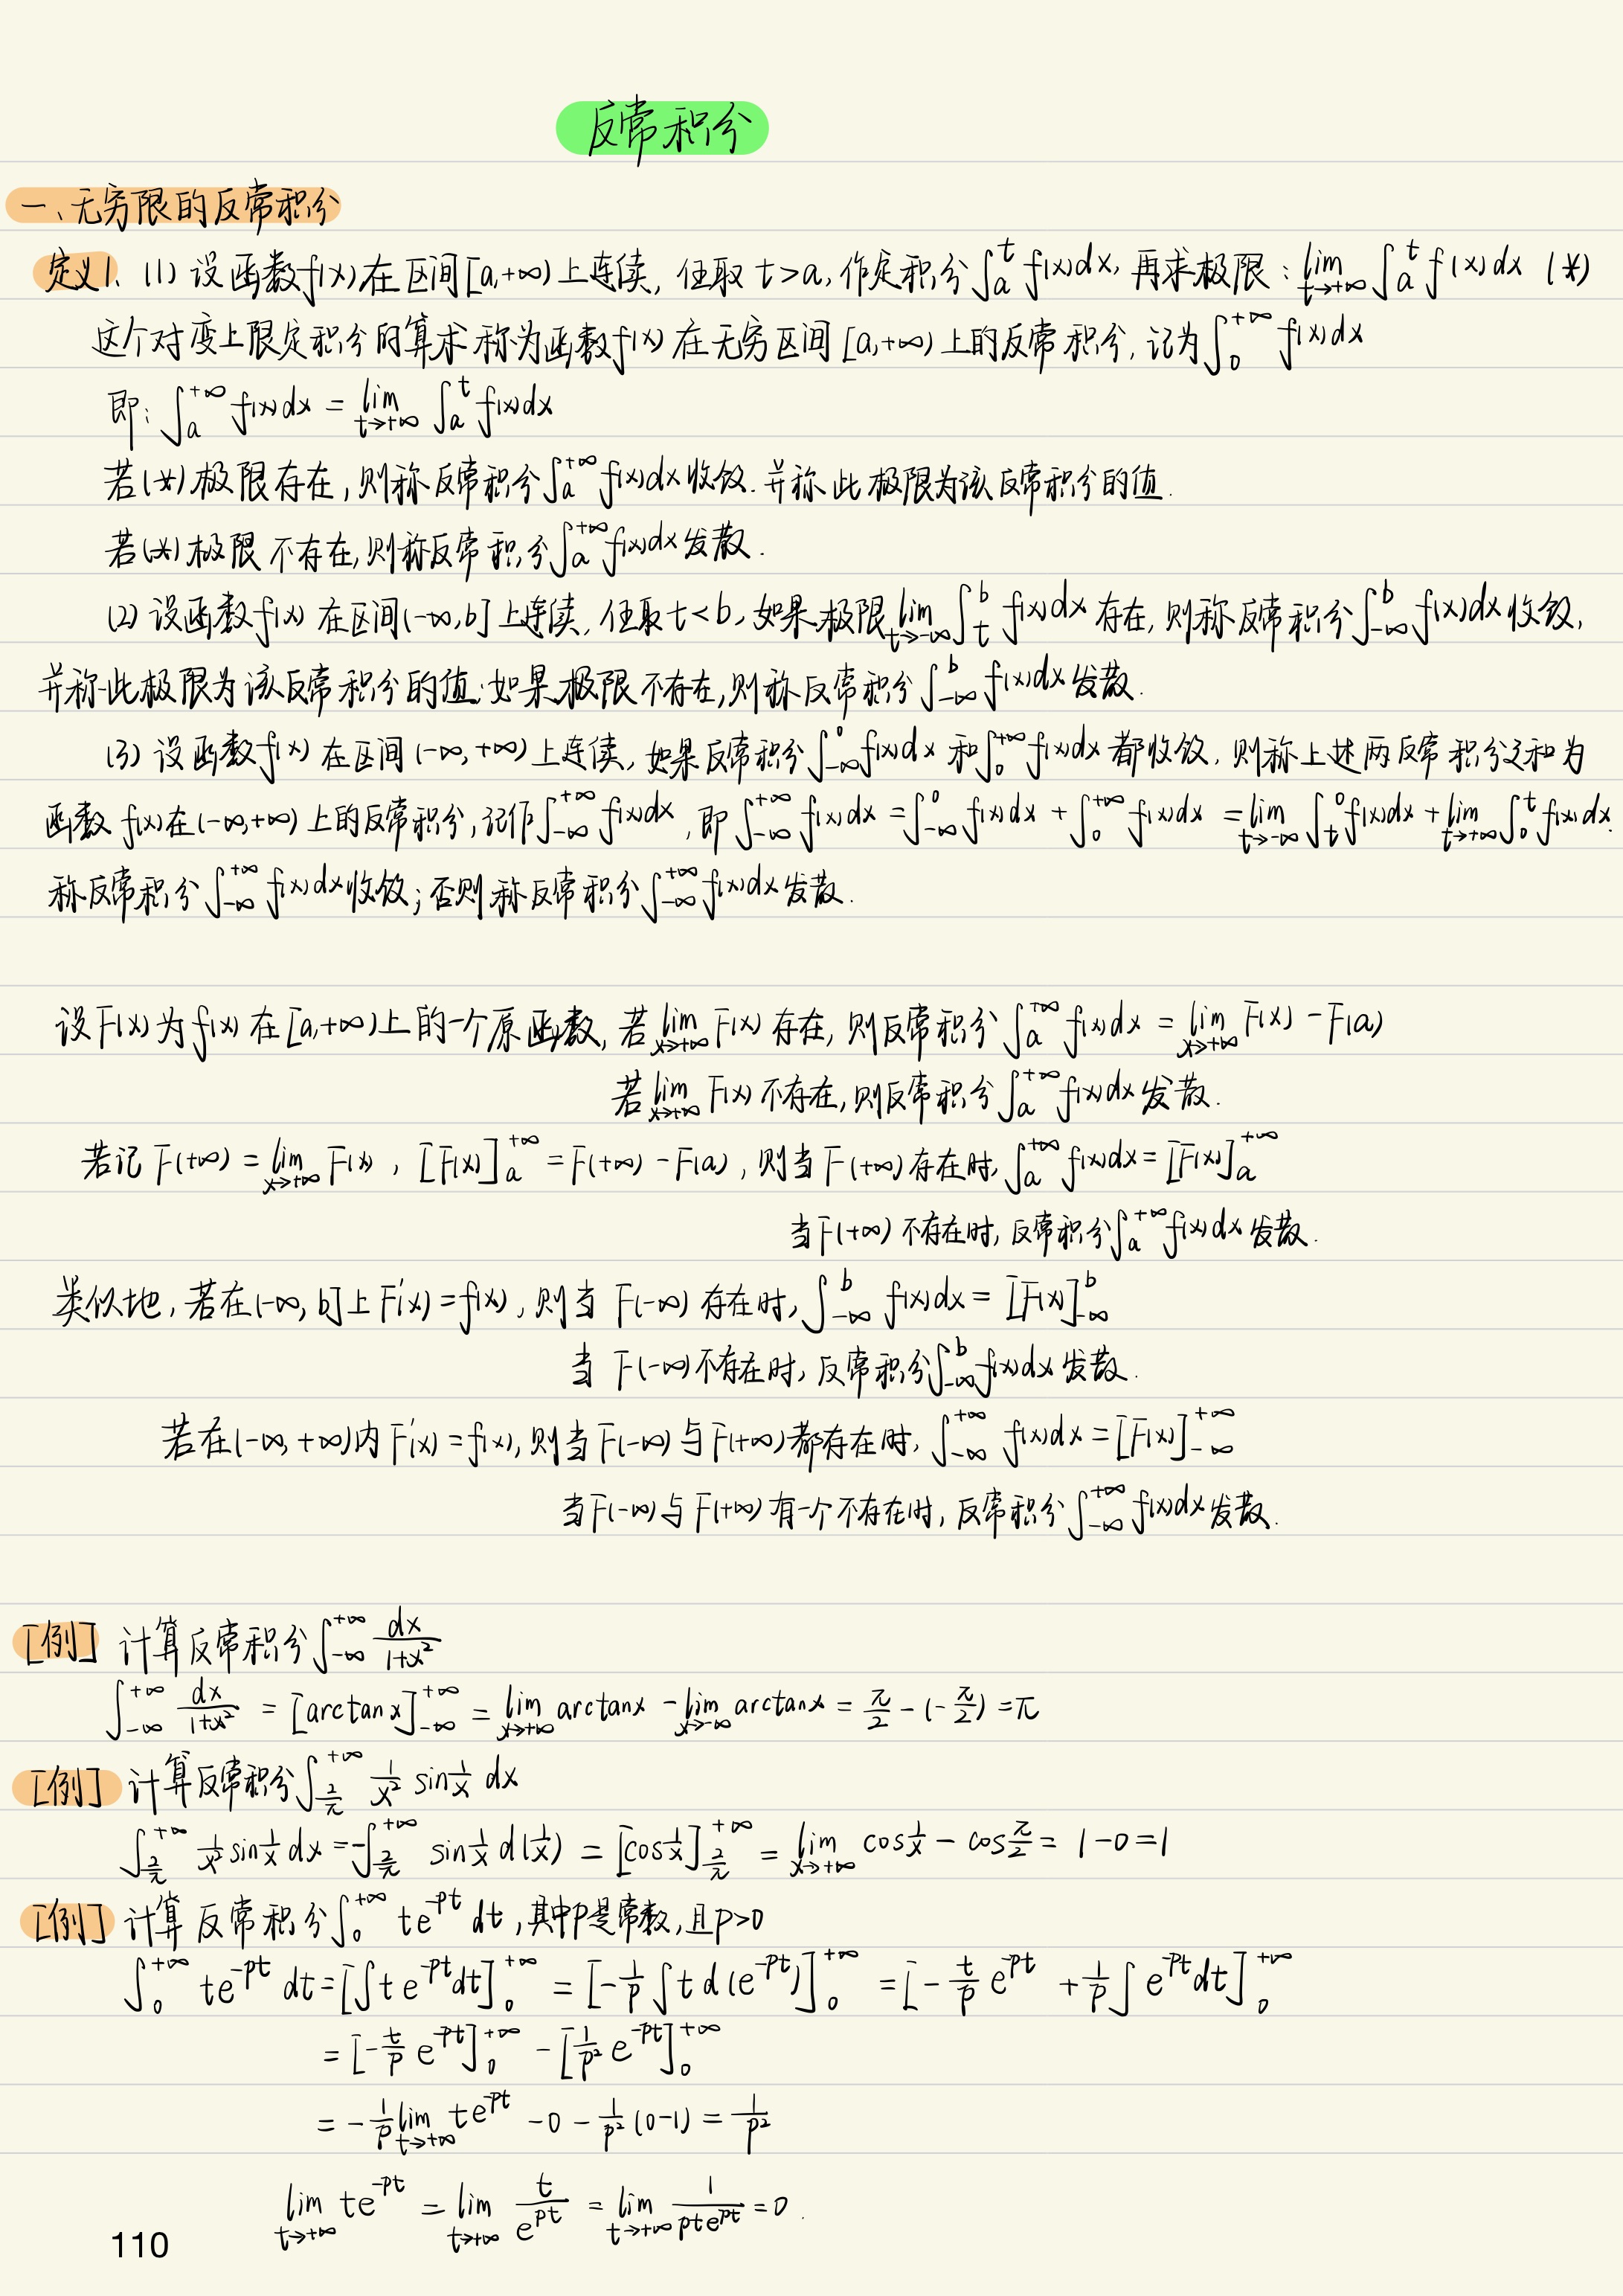 反常积分
一、无穷限的反常积分
定义1. (1) 设函数f(x)在区间[a,+∞)上连续, 任取 t>a, 作定积分∫_a^t f(x)dx, 再求极限: lim_{t→+∞} ∫_a^t f(x)dx (*)
这个对变上限定积分的算术称为函数f(x)在无穷区间 [a,+∞) 上的反常积分, 记为∫_0^{+∞} f(x)dx
即: ∫_a^{+∞} f(x)dx = lim_{t→+∞} ∫_a^t f(x)dx
若(*)极限存在, 则称反常积分∫_a^{+∞} f(x)dx收敛. 并称此极限为该反常积分的值.
若(*)极限不存在, 则称反常积分∫_a^{+∞} f(x)dx发散.
(2) 设函数f(x)在区间(-∞,b]上连续, 任取 t<b, 如果极限lim_{t→-∞} ∫_t^b f(x)dx存在, 则称反常积分∫_{-∞}^b f(x)dx收敛,
并称此极限为该反常积分的值; 如果极限不存在, 则称反常积分∫_{-∞}^b f(x)dx发散.
(3) 设函数f(x)在区间(-∞,+∞)上连续, 如果反常积分∫_{-∞}^0 f(x)dx 和∫_0^{+∞} f(x)dx都收敛, 则称上述两反常积分之和为
函数 f(x)在(-∞,+∞)上的反常积分, 记作∫_{-∞}^{+∞} f(x)dx, 即 ∫_{-∞}^{+∞} f(x)dx = ∫_{-∞}^0 f(x)dx + ∫_0^{+∞} f(x)dx = lim_{t→-∞} ∫_t^0 f(x)dx + lim_{t→+∞} ∫_0^t f(x)dx.
称反常积分∫_{-∞}^{+∞} f(x)dx收敛; 否则称反常积分∫_{-∞}^{+∞} f(x)dx发散.
设F(x)为f(x)在[a,+∞)上的一个原函数, 若lim_{x→+∞} F(x)存在, 则反常积分∫_a^{+∞} f(x)dx = lim_{x→+∞} F(x) - F(a)
若lim_{x→+∞} F(x)不存在, 则反常积分∫_a^{+∞} f(x)dx发散.
若记 F(+∞) = lim_{x→+∞} F(x), [F(x)]_a^{+∞} = F(+∞) - F(a), 则当F(+∞)存在时, ∫_a^{+∞} f(x)dx = [F(x)]_a^{+∞}
当F(+∞)不存在时, 反常积分∫_a^{+∞} f(x)dx发散.
类似地, 若在(-∞, b]上F'(x) = f(x), 则当 F(-∞) 存在时, ∫_{-∞}^b f(x)dx = [F(x)]_{-∞}^b
当 F(-∞)不存在时, 反常积分∫_{-∞}^b f(x)dx发散.
若在(-∞, +∞)内F'(x) = f(x), 则当F(-∞)与F(+∞)都存在时, ∫_{-∞}^{+∞} f(x)dx = [F(x)]_{-∞}^{+∞}
当F(-∞)与F(+∞)有一个不存在时, 反常积分∫_{-∞}^{+∞} f(x)dx发散.
[例] 计算反常积分∫_{-∞}^{+∞} dx/(1+x²)
∫_{-∞}^{+∞} dx/(1+x²) = [arctan x]_{-∞}^{+∞} = lim_{x→+∞} arctanx - lim_{x→-∞} arctanx = π/2 - (-π/2) = π
[例] 计算反常积分∫_{2/π}^{+∞} 1/x² sin 1/x dx
∫_{2/π}^{+∞} 1/x² sin 1/x dx = -∫_{2/π}^{+∞} sin 1/x d(1/x) = [cos 1/x]_{2/π}^{+∞} = lim_{x→+∞} cos 1/x - cos π/2 = 1-0=1
[例] 计算反常积分∫_0^{+∞} te^{-pt} dt, 其中p是常数, 且p>0
∫_0^{+∞} te^{-pt} dt = [∫te^{-pt}dt]_0^{+∞} = [-1/p ∫t d(e^{-pt})]_0^{+∞} = [-t/p e^{-pt} + 1/p ∫e^{-pt}dt]_0^{+∞}
= [-t/p e^{-pt}]_0^{+∞} - [1/p² e^{-pt}]_0^{+∞}
= -1/p lim_{t→+∞} te^{-pt} - 0 - 1/p² (0-1) = 1/p²
lim_{t→+∞} te^{-pt} = lim_{t→+∞} t/e^{pt} = lim_{t→+∞} 1/(pte^{pt}) = 0.
110